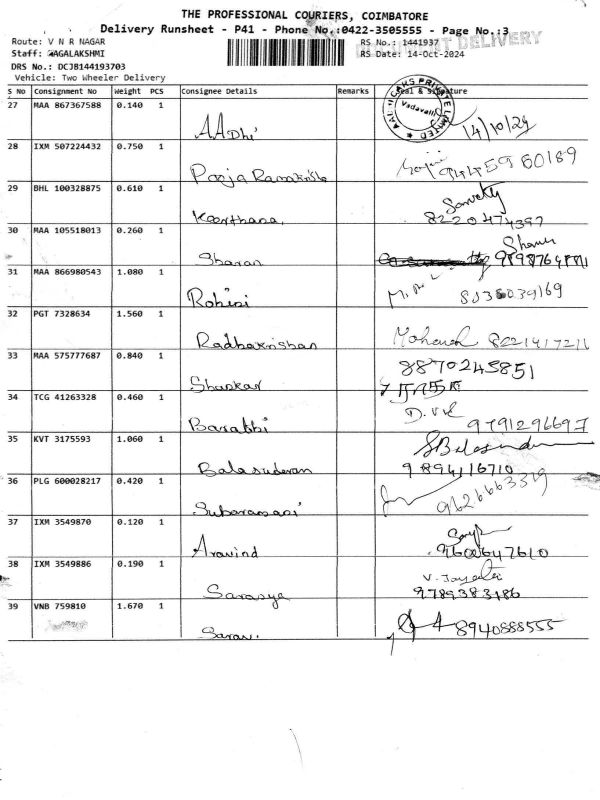 THE PROFESSIONAL COURIERS, COIMBATORE
Delivery Runsheet - P41 - Phone No.:0422-3505555 - Page No.:3
Route: V N R NAGAR RS No.: 1441937
Staff: NAGALAKSHMI RS Date: 14-Oct-2024
DRS No.: DCJB144193703
Vehicle: Two Wheeler Delivery
S No Consignment No Weight PCS Consignee Details Remarks Seal & Signature
Vadavalli
27 MAA 867367588 0.140 1
AADhi 14/10/24
28 IXM 507224432 0.750 1
Pooja 94459 60189
29 BHL 100328875 0.610 1
Keerthana 8220474397
30 MAA 105518013 0.260 1
Sharan
31 MAA 866980543 1.080 1
Rohini
32 PGT 7328634 1.560 1
Radhakrishan 8221417211
33 MAA 575777687 0.840 1
8870245851
Shankar
34 TCG 41263328 0.460 1
Barathi 9791296697
35 KVT 3175593 1.060 1
Balasuderan 9894116710
36 PLG 600028217 0.420 1
Subaramani 9626663319
37 IXM 3549870 0.120 1
Aravind 9600647610
38 IXM 3549886 0.190 1
Sarasya 9789383186
39 VNB 759810 1.670 1
Saran. 8940888555